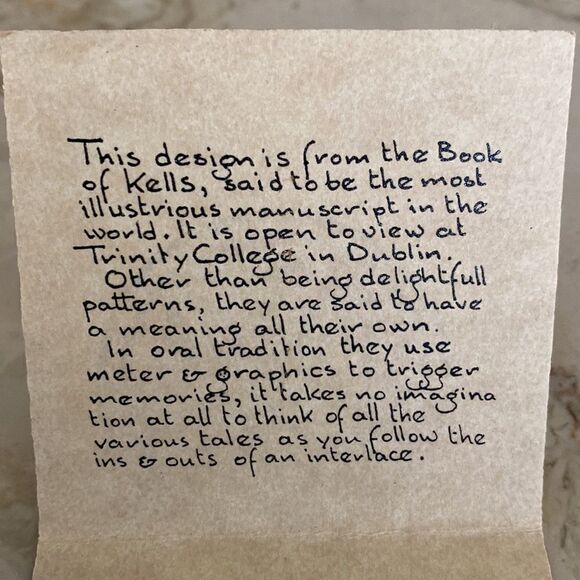 This design is from the Book
of Kells, said to be the most
illustrious manuscript in the
world. It is open to view at
Trinity College in Dublin.
Other than being delightfull
patterns, they are said to have
a meaning all their own.
In oral tradition they use
meter & graphics to trigger
memories, it takes no imagina
tion at all to think of all the
various tales as you follow the
ins & outs of an interlace.